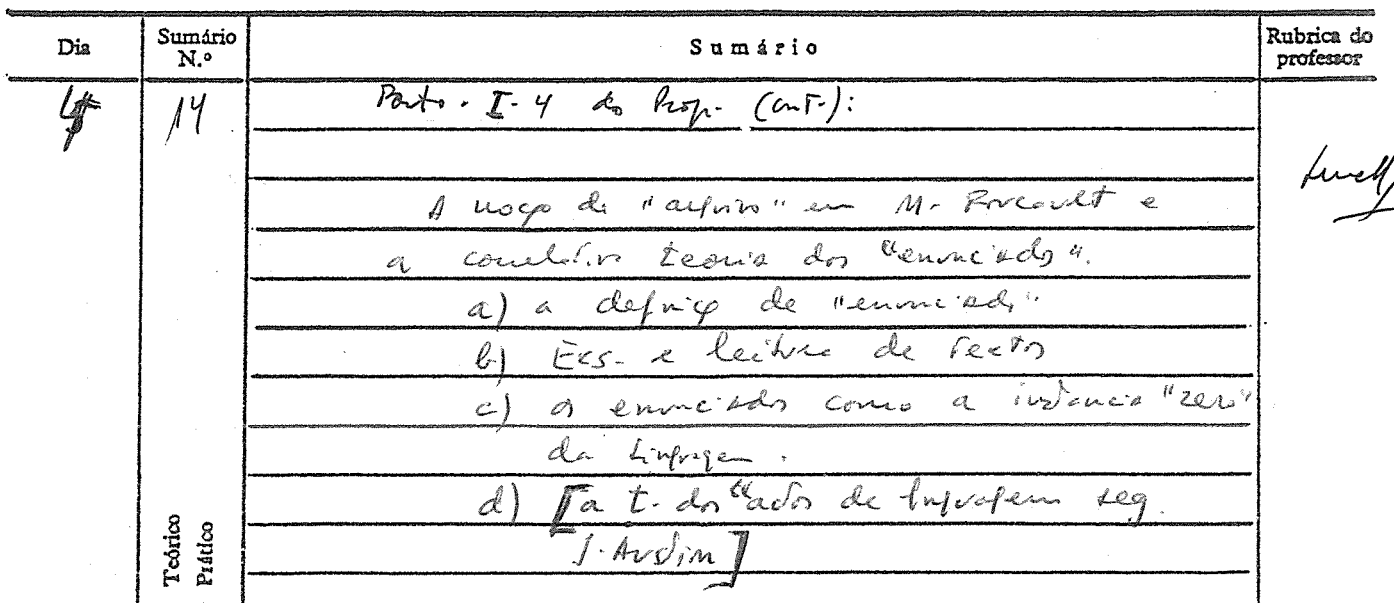 Dia Sumário N.º Sumário Rubrica do professor
14 Ponto. I-4 do Prog. (cont.):
A noção de "arquivo" em M. Foucault e
a correlativa teoria dos "enunciados".
a) a definição de "enunciado"
b) Exs. e leitura de textos
c) os enunciados como a instância "zero"
da linguagem.
d) [a t. dos "actos de linguagem seg.
J. Austin]
Teórico
Prático